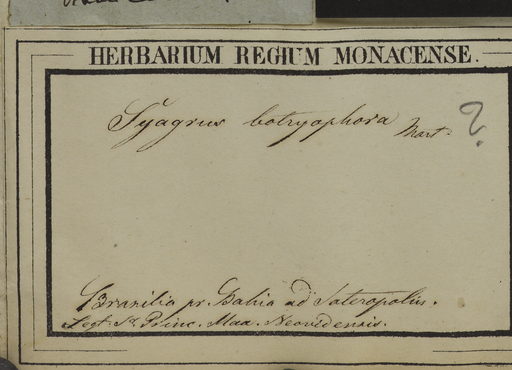 HERBARIUM REGIUM MONACENSE.
Syagrus botryophora Mart. ?
Brasilia pr. Bahia ad Soteropolin.
Legt. S. Princ. Max. Neovidensis.